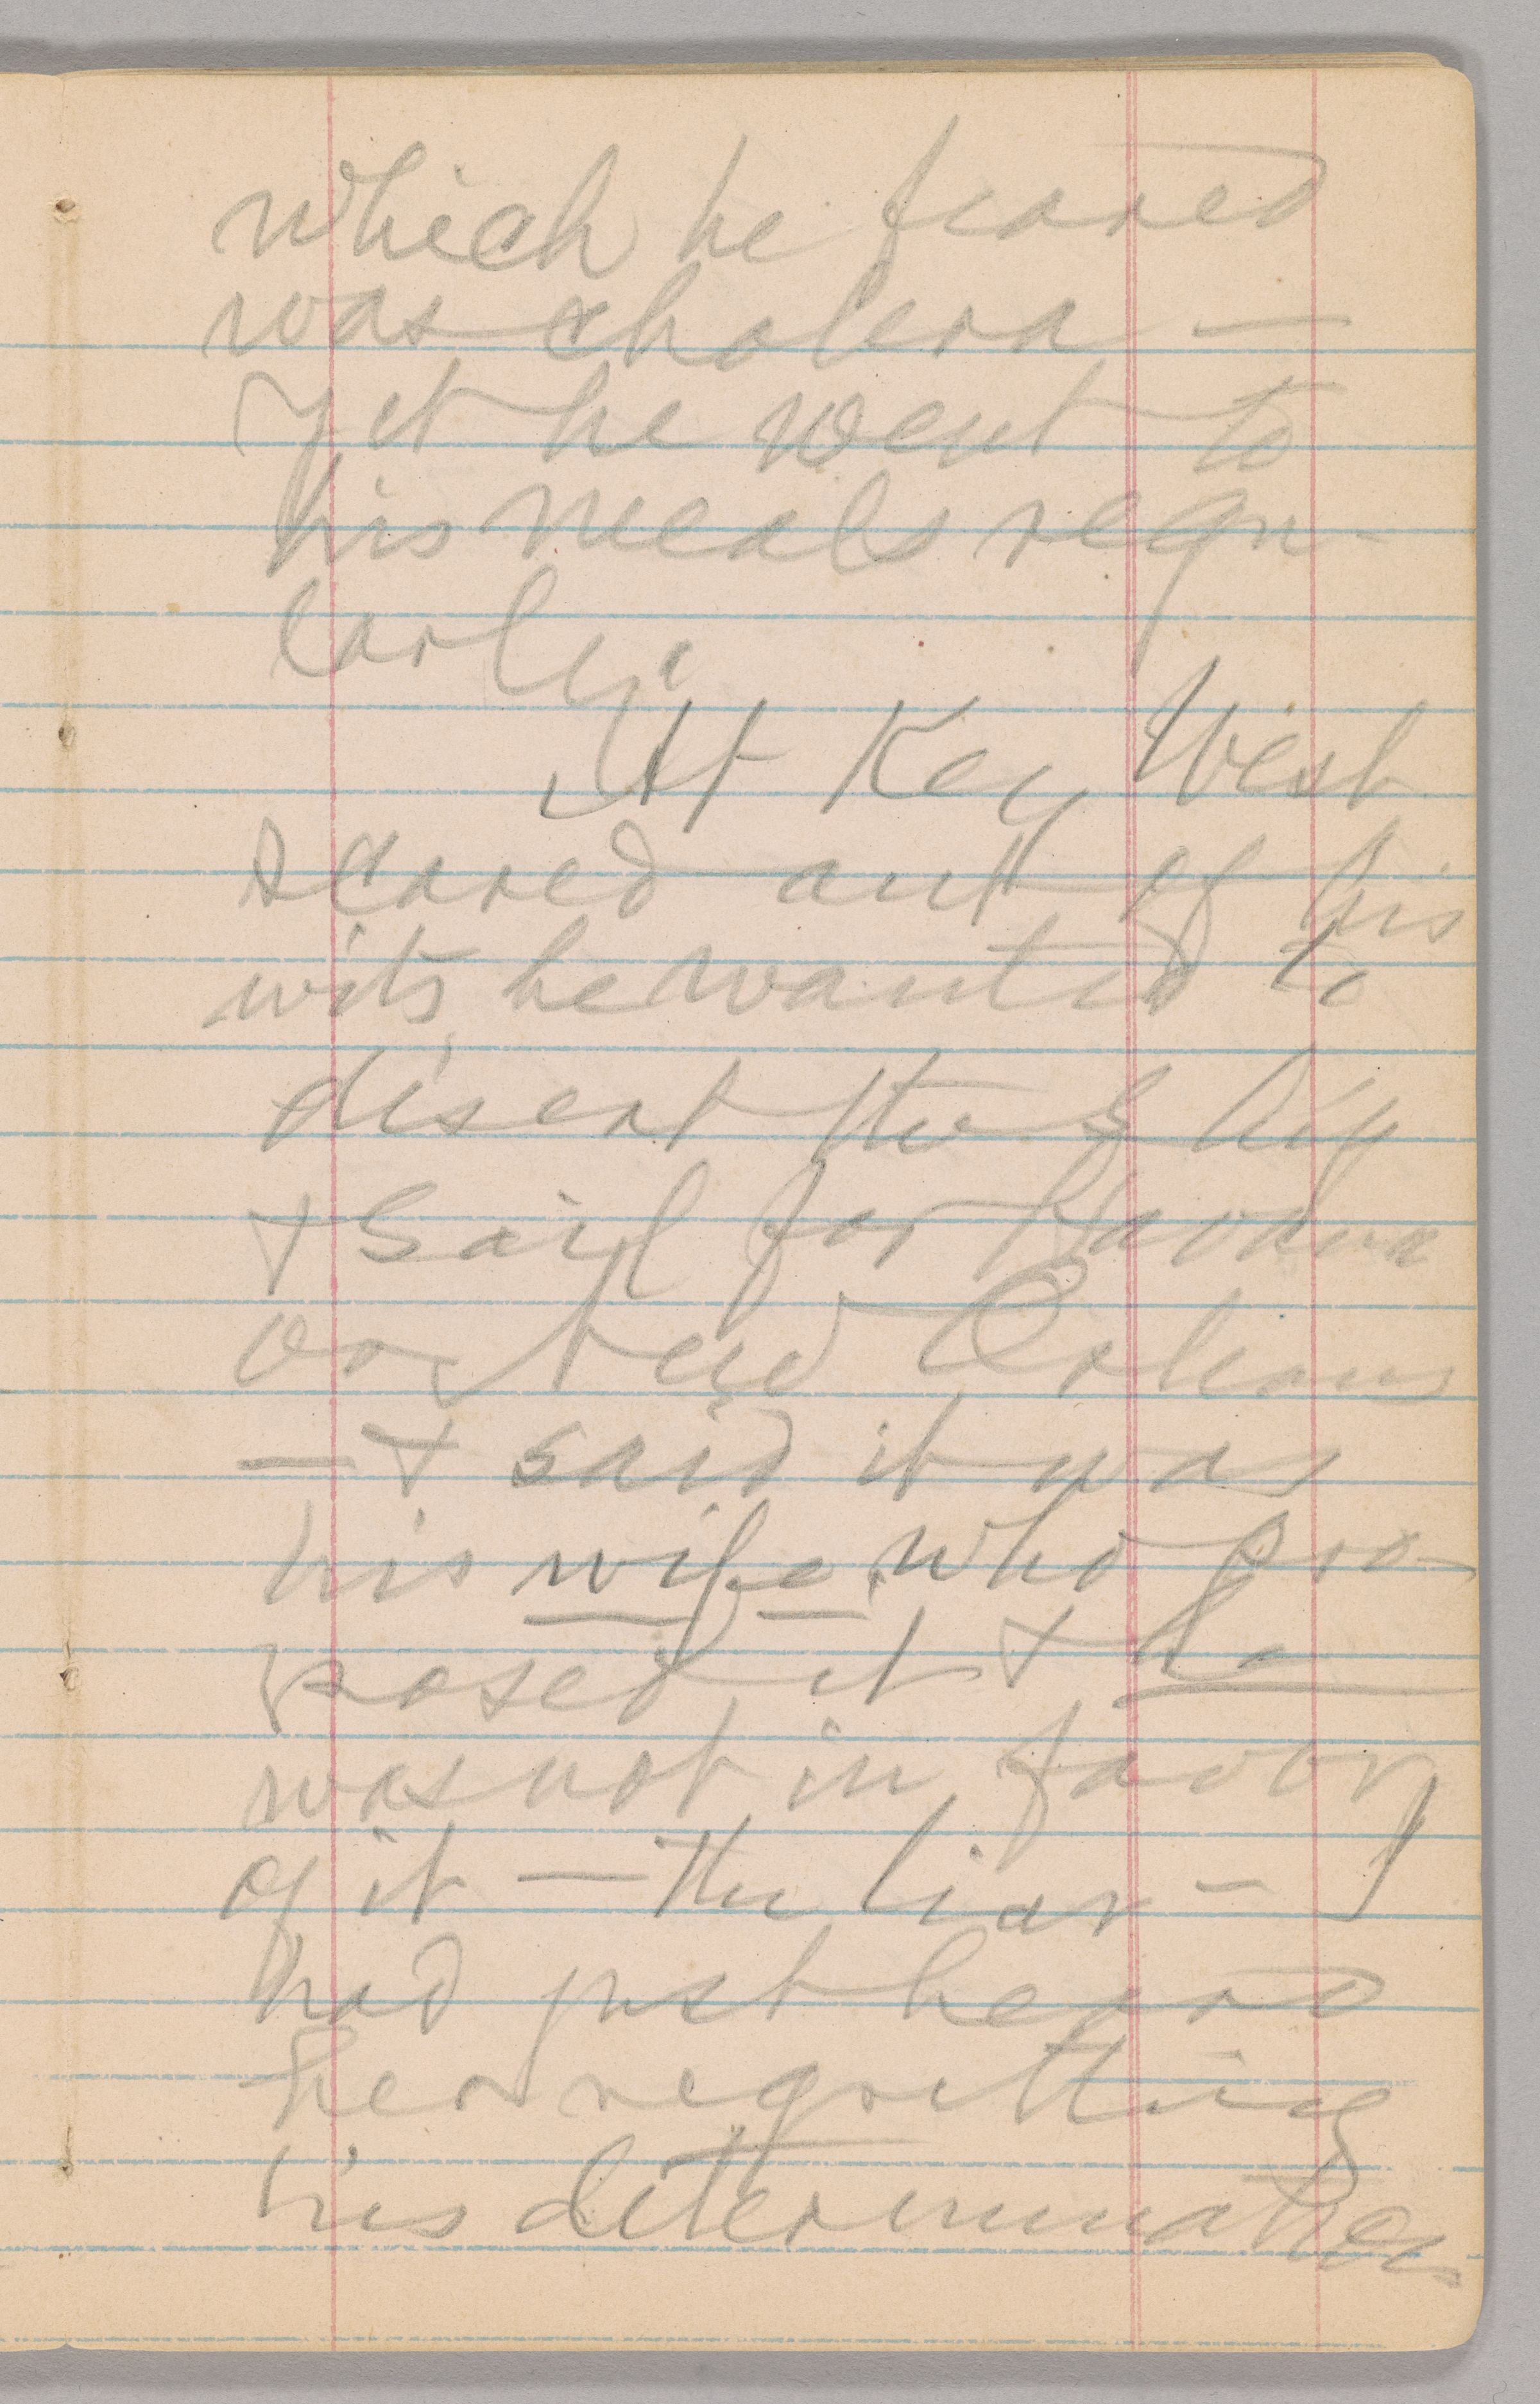 which he feared
was cholera —
yet he went to
his meals regu-
larly.
At Key West
scared out of his
wits, he wanted to
desert the ship
& sail for Havana
or New Orleans
— & said it was
his wife who pro-
posed it & he
was not in favor
of it — the liar — I
had just heard
her regretting
his determination